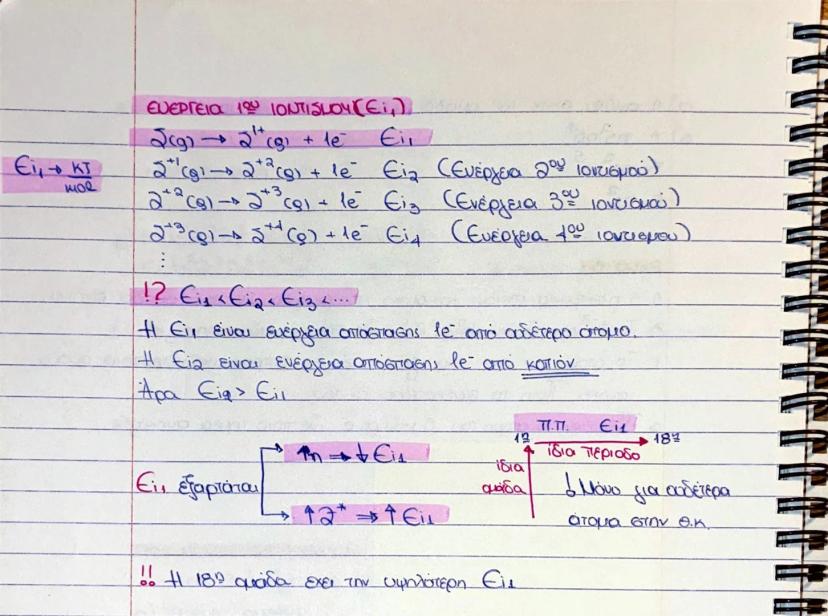 ΕΝΕΡΓΕΙΑ 1ου ΙΟΝΤΙΣΜΟΥ (Ei₁)
Σ(g) → Σ¹⁺(g) + 1e⁻ Ei₁
Ei₁ → KJ/mol
Σ⁺¹(g) → Σ⁺²(g) + 1e⁻ Ei₂ (Ενέργεια 2ου ιοντισμού)
Σ⁺²(g) → Σ⁺³(g) + 1e⁻ Ei₃ (Ενέργεια 3ου ιοντισμού)
Σ⁺³(g) → Σ⁺⁴(g) + 1e⁻ Ei₄ (Ενέργεια 4ου ιοντισμου)
⋮
!? Ei₁ < Ei₂ < Ei₃ < ...
Η Ei₁ είναι ενέργεια απόσπασης 1e⁻ από ουδέτερο άτομο.
Η Ei₂ είναι ενέργεια απόσπασης 1e⁻ από κατιόν
Άρα Ei₂ > Ei₁
Π.Π. Ei₁
1η → 18η
ίδια περίοδο
ίδια
ομάδα
↑n ⇒ ↓ Ei₁
Ei₁ εξαρτάται
↑Z* ⇒ ↑ Ei₁
Μόνο για ουδέτερα
άτομα στην Θ.Κ.
!! Η 18η ομάδα εχει την υψηλότερη Ei₁